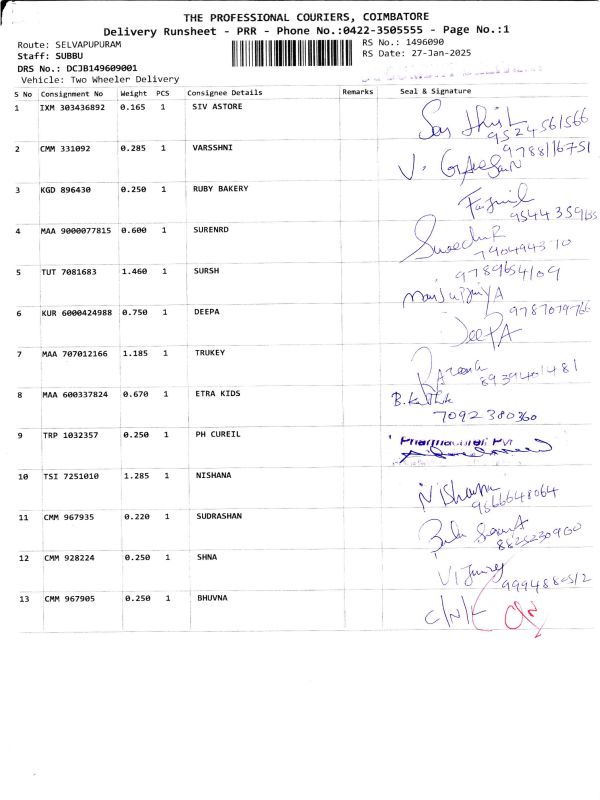 THE PROFESSIONAL COURIERS, COIMBATORE
Delivery Runsheet - PRR - Phone No.:0422-3505555 - Page No.:1
Route: SELVAPUPURAM
RS No.: 1496090
Staff: SUBBU
RS Date: 27-Jan-2025
DRS No.: DCJB149609001
Vehicle: Two Wheeler Delivery
S No Consignment No Weight PCS Consignee Details Remarks Seal & Signature
1 IXM 303436892 0.165 1 SIV ASTORE
9524561566
2 CMM 331092 0.285 1 VARSSHNI
9788116751
3 KGD 896430 0.250 1 RUBY BAKERY
4 MAA 9000077815 0.600 1 SURENRD
5 TUT 7081683 1.460 1 SURSH
9789654109
6 KUR 6000424988 0.750 1 DEEPA
9787079766
DeepA
7 MAA 707012166 1.185 1 TRUKEY
8939401481
8 MAA 600337824 0.670 1 ETRA KIDS
7092380360
9 TRP 1032357 0.250 1 PH CUREIL
10 TSI 7251010 1.285 1 NISHANA
Nishana
9566648064
11 CMM 967935 0.220 1 SUDRASHAN
8825230960
12 CMM 928224 0.250 1 SHNA
13 CMM 967905 0.250 1 BHUVNA